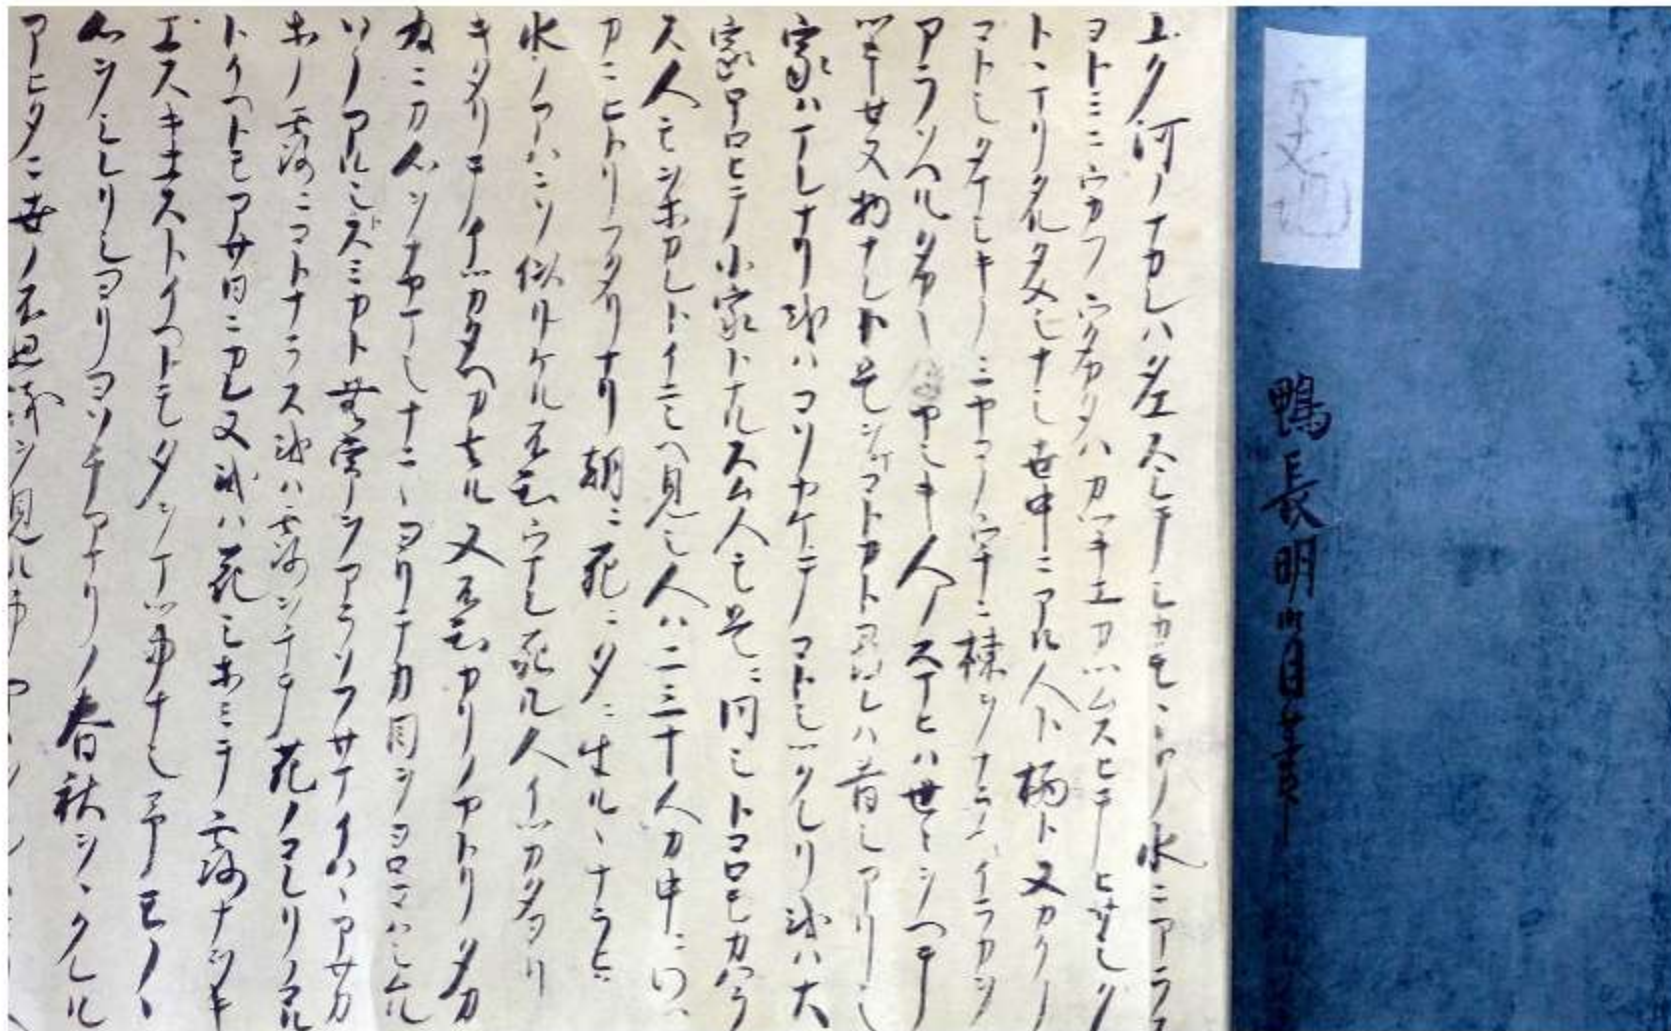 鴨長明
ユク河ノナカレハタエスシテシカモヽトノ水ニアラス
ヨトミニウカフウタカタハカツキエカツムスヒテヒサシク
トヽマリタルタメシナシ世中ニアル人ト栖ト又カクノ
コトシタマシキノミヤコノウチニ棟ヲナラヘイラカヲ
アラソヘルタカキイヤシキ人ノスマヒハ世々ヲヘテ
ツキセヌ物ナレト是ヲマコトカト尋レハ昔シアリシ
家ハマレナリ或ハコソヤケテコトシツクレリ或ハ大
家ホロヒテ小家トナルスム人モ是ニ同シトコロモカハラ
ス人モヲホカレトイニシヘ見シ人ハ二三十人カ中ニワツ
カニヒトリフタリナリ朝ニ死ニ夕ニ生ルヽナラヒ
水ノアハニソ似リケル不知ウマレ死ル人イツカタヨリ
キタリテイツカタヘカ去ル又不知カリノヤトリタカ
為ニカ心ヲナヤマシナニヽヨリテカ目ヲヨロコハシムル
ソノアルシトスミカト無常ヲアラソフサマイハヽアサカ
ホノ露ニコトナラス或ハ露ヲチテ花ノコレリノコル
トイヘトモアサ日ニカレヌ或ハ花シホミテ露ナヲキ
エスキエストイヘトモ夕ヲマツ事ナシ予モノヽ
心ヲシレリシヨリヨソチアマリノ春秋ヲヽクレル
アヒタニ世ノ不思議ヲ見ル事